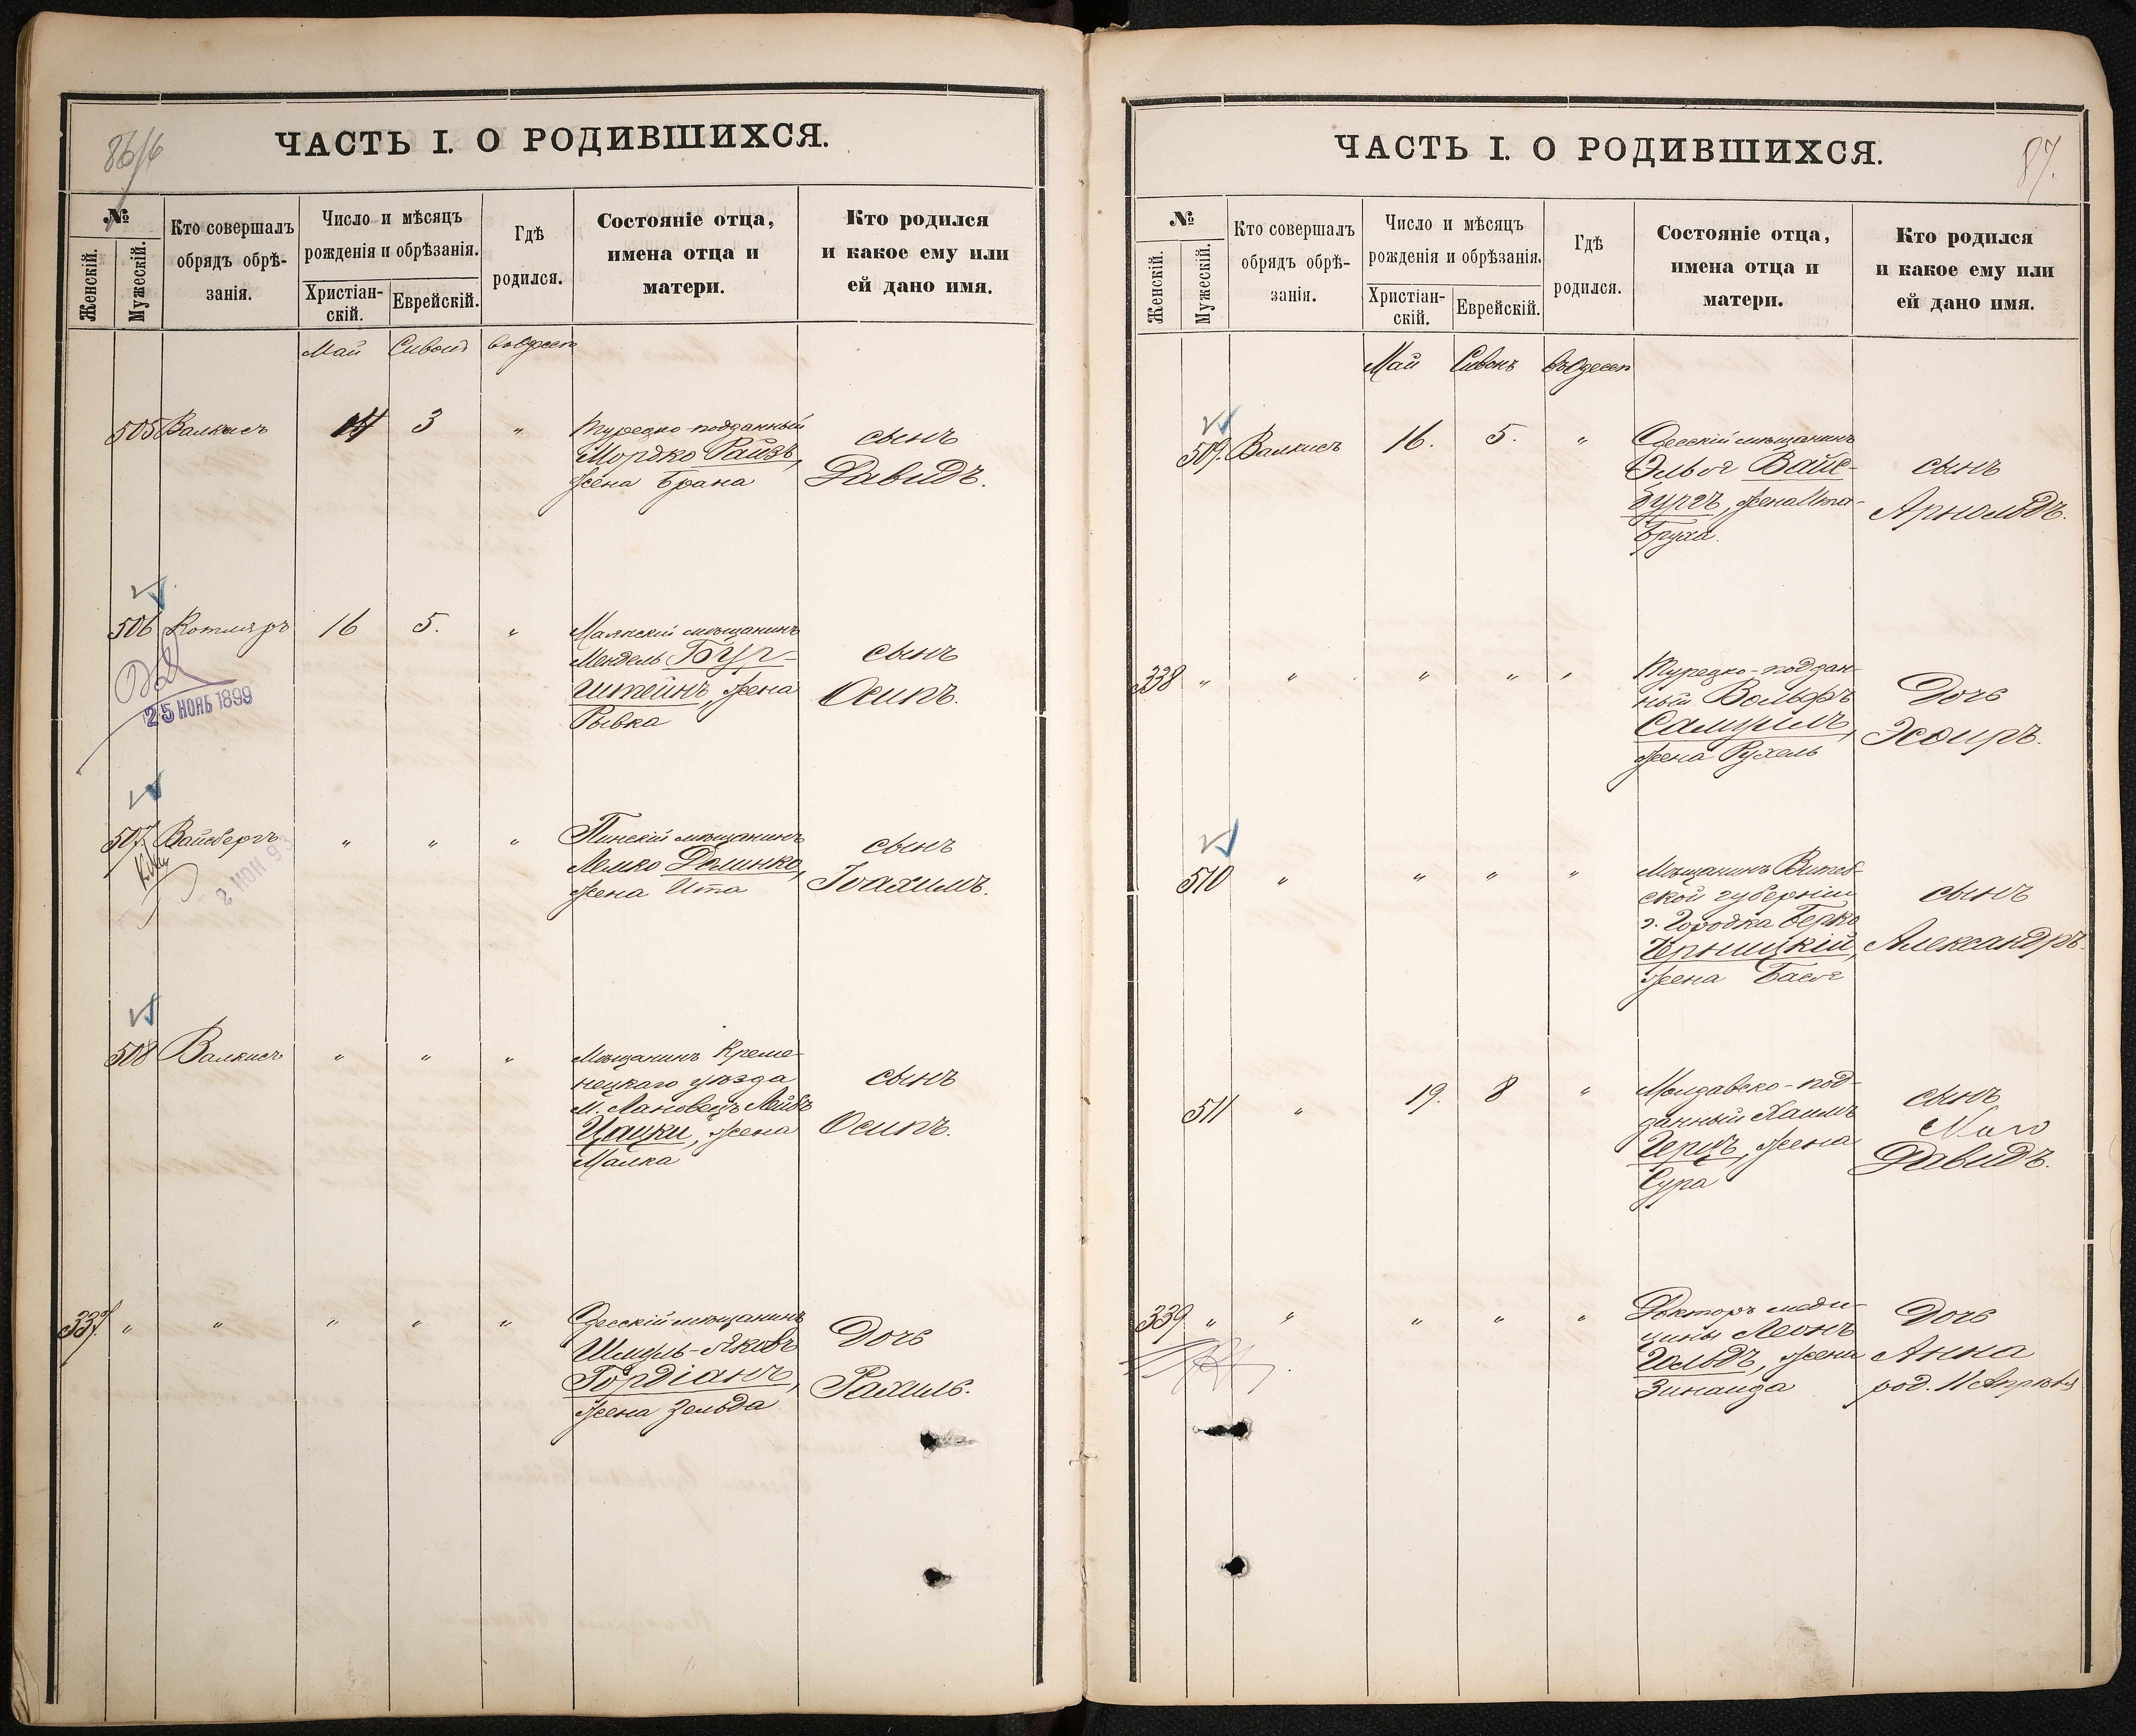 ЧАСТЬ I. О РОДИВШИХСЯ.
№
Женскій.
Мужескій.
Кто совершалъ
обрядъ обрѣ-
занія.
Число и мѣсяцъ
рожденія и обрѣзанія.
Христіан-
скій.
Еврейскій.
Гдѣ
родился.
Состояніе отца,
имена отца и
матери.
Кто родился
и какое ему или
ей дано имя.
Май
505 Валкисъ 3 "
Турецко-подданный
Мордко Райзъ,
жена Брана
сынъ
Давидъ.
506 Котляръ 16 5. "
Маякскій мѣщанинъ
Мендель Бур-
штейнъ, жена
Рывка
сынъ
Осипъ.
25 НОЯБ 1899
507. Вайсбергъ " " "
Пинскій мѣщанинъ
Лемко Долинко,
жена Ита
сынъ
Іоахимъ.
2 ИЮН 93
508 Валкисъ " " "
Мѣщанинъ Креме-
нецкаго уѣзда
м. Лановецъ Лейбъ
Цацки, жена
Малка
сынъ
Осипъ.
337. " " " " "
Одесскій мѣщанинъ
Шмуль-Яковъ
Гордіанъ,
жена Зельда
Дочь
Рахиль.
ЧАСТЬ I. О РОДИВШИХСЯ.
87.
№
Женскій.
Мужескій.
Кто совершалъ
обрядъ обрѣ-
занія.
Число и мѣсяцъ
рожденія и обрѣзанія.
Христіан-
скій.
Еврейскій.
Гдѣ
родился.
Состояніе отца,
имена отца и
матери.
Кто родился
и какое ему или
ей дано имя.
Май
509. Валкисъ 16. 5. "
Одесскій мѣщанинъ
Эльог Вайс-
бургъ, жена Ита-
Бруха.
сынъ
Арнольдъ.
338 " " " " "
Турецко-поддан-
ный Вольфъ
Самуилъ,
жена Рухель
Дочь
Эсѳиръ.
510 " " " "
Мѣщанинъ Витеб-
ской губерніи
г. Городка Берко
Черницкій,
жена Бася
сынъ
Александръ.
511 " 19. 8 "
Молдавско-под-
данный Хаимъ
Герцъ, жена
Сура
сынъ
Давидъ.
339 " " " " "
Докторъ меди-
цины Леонъ
Гольдъ, жена
Зинаида
Дочь
Анна
род. 11 Апрѣля